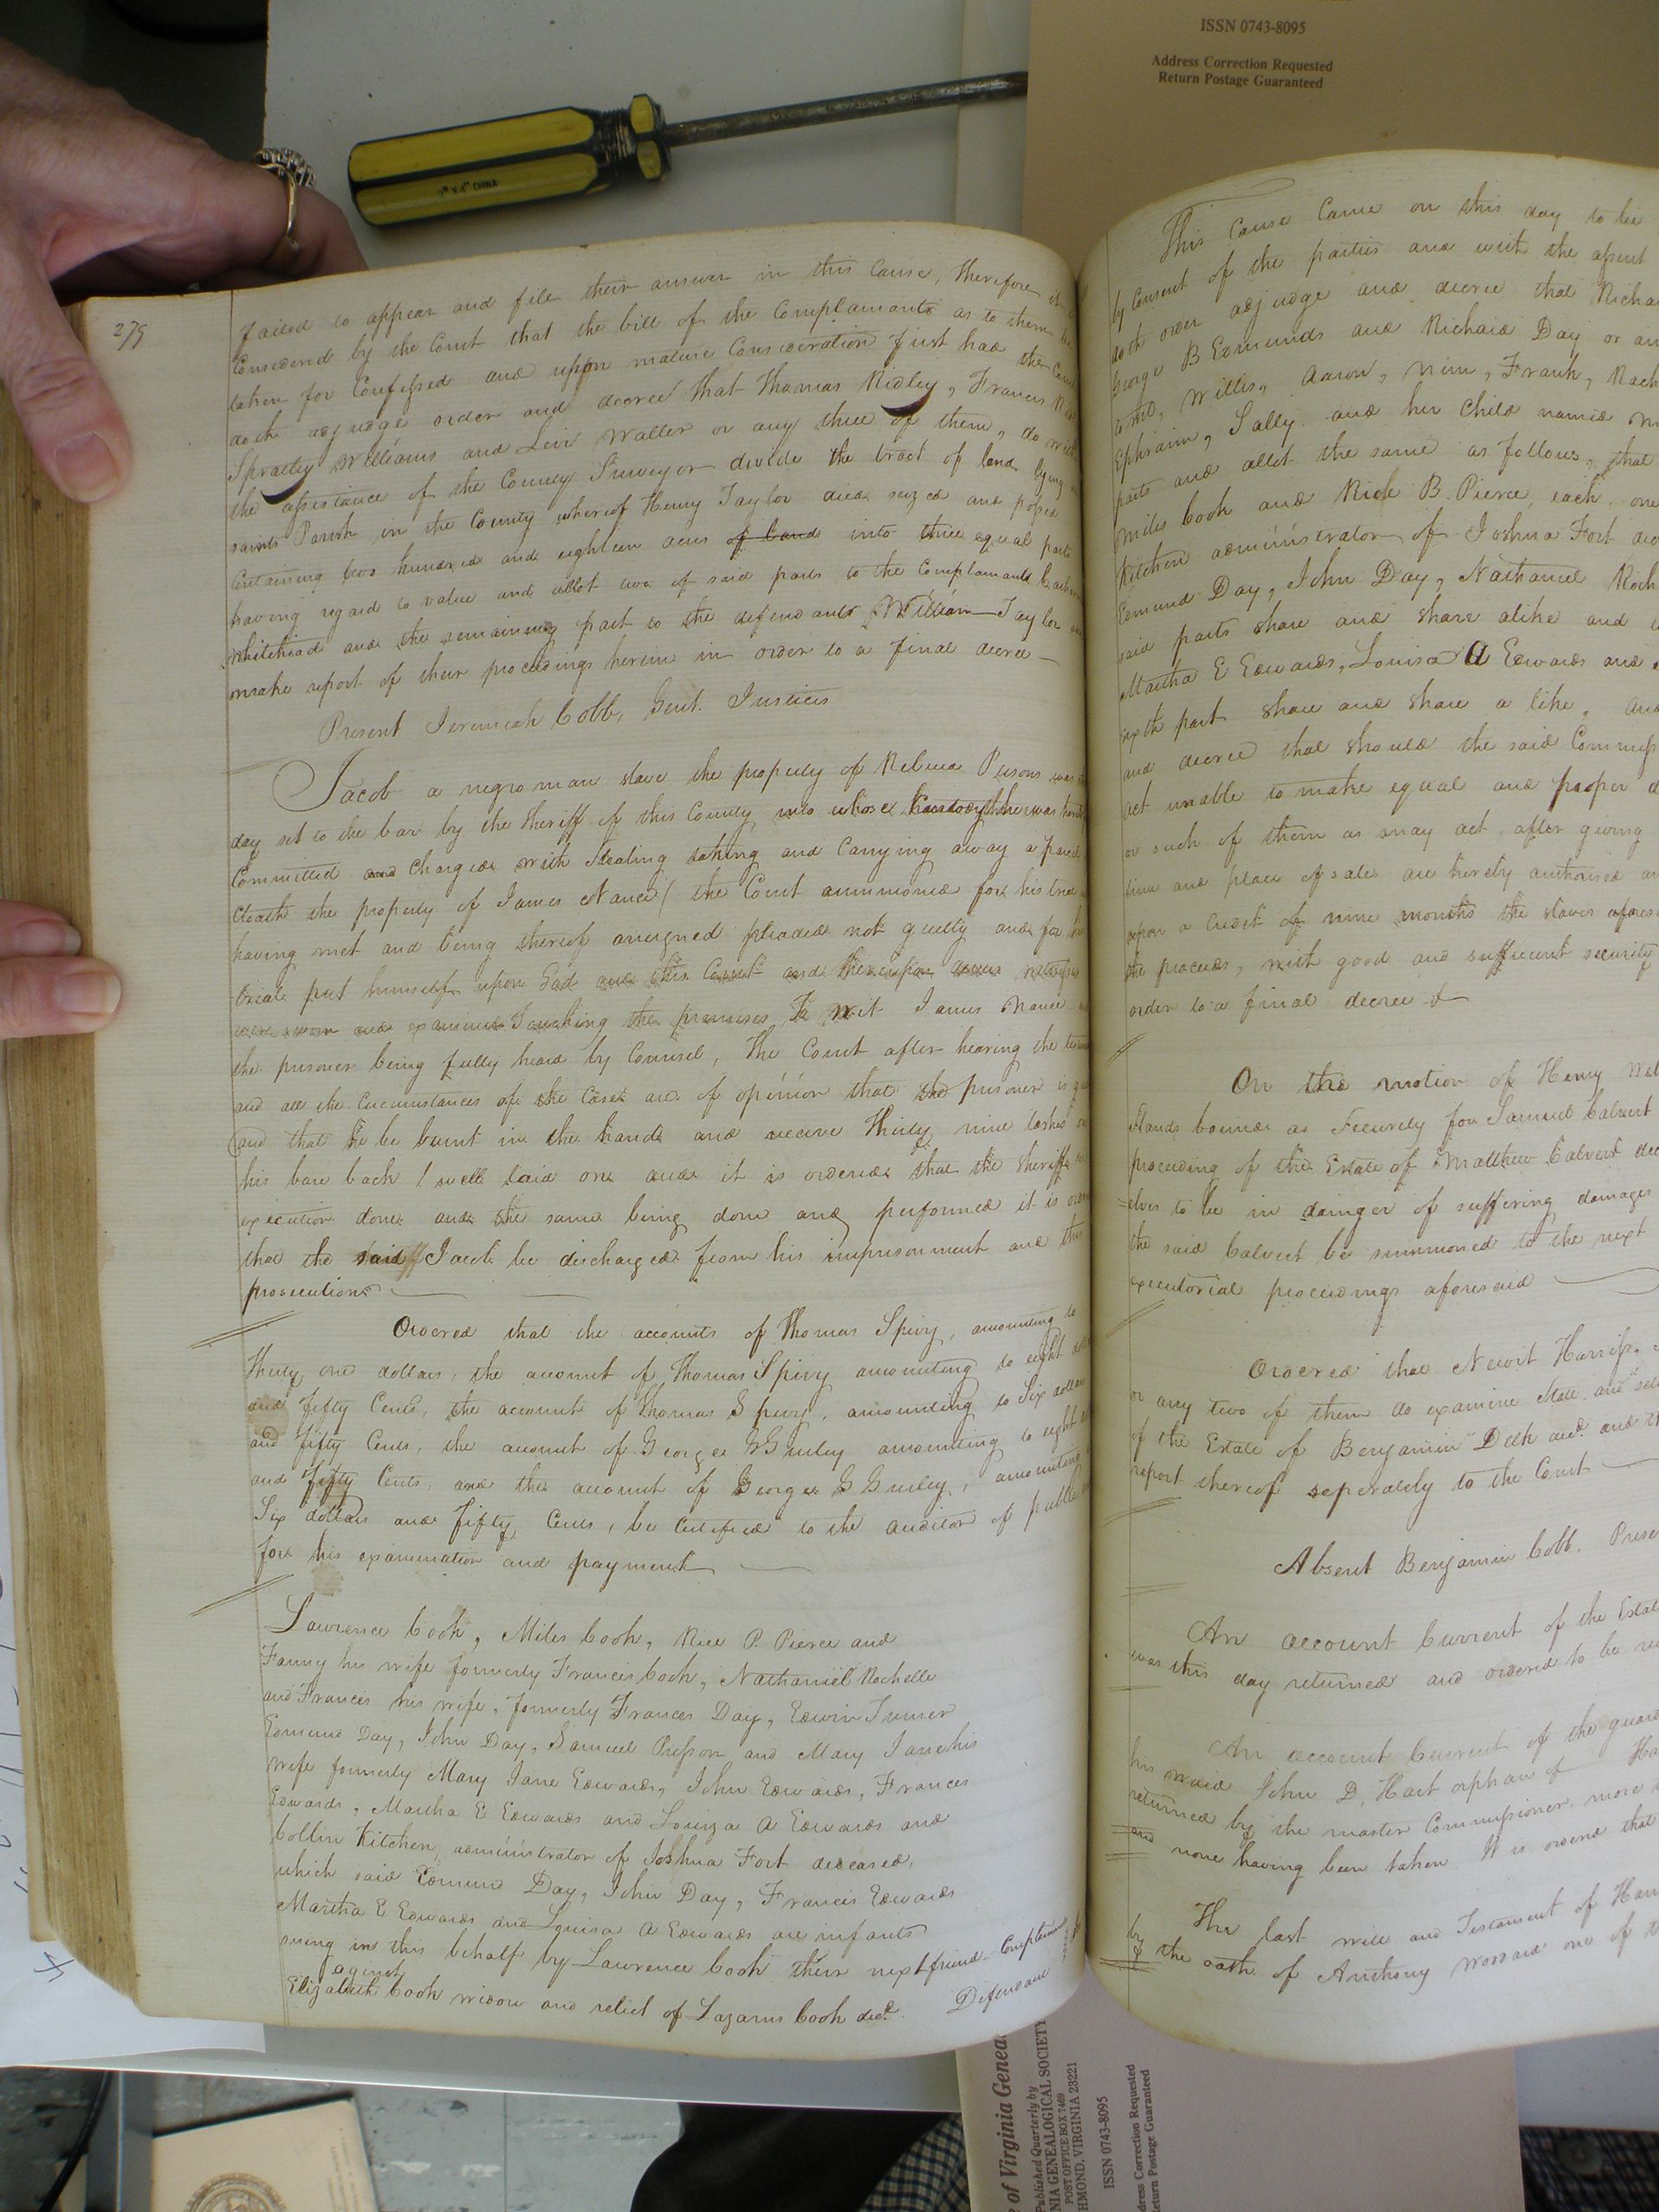 ISSN 0743-8095
Address Correction Requested
Return Postage Guaranteed
CHINA
279
failed to appear and file their answer in this Cause, Therefore it
Considered by the Court that the bill of the Complamants as to them be
taken for Confessed and upon mature Consideration first had the Court
doth adjudge order and decree that Thomas Ridley, Francis
Spratley Williams and Levi Waller or any three of them, do with
the assistance of the County Surveyor divide the tract of land lying
saints Parish in the County whereof Henry Taylor died seized and
Containing two hundred and eighteen acres of land into three equal parts
having regard to value and allot two of said parts to the Complamants
Whitehead and the remaining part to the defendants William Taylor
make report of their proceedings herein in order to a final decree
Present Jeremiah Cobb, Gent. Justices
Jacob a negro man slave the property of Rebecca Persons was
day set to the bar by the Sheriff of this County into whose Custody he was
Committed and Charged with Stealing taking and Carrying away a
Cloath the property of James Nance / the Court summoned for his trial
having met and being thereof arraigned pleaded not guilty and for
trial put himself upon God and this Court and thereupon
were sworn and examined Touching the premises To wit James Nance
the prisoner being fully heard by Counsel, The Court after hearing the
and all the Circumstances of the Case are of opinion that the prisoner is
and that he be burnt in the hand and receive Thirty nine lashes on
his bare back well laid on and it is ordered that the Sheriff
execution done and the same being done and performed it is
that the said Jacob be discharged from his imprisonment and this
prosecution
Ordered that the accounts of Thomas Spivy, amounting to
Thirty one dollars, the account of Thomas Spivy amounting to eight
and fifty Cents, the account of Thomas Spivy, amounting to Six dollars
and fifty Cents, the account of George Gurley amounting to eight
and fifty Cents, and the account of George G Gurley, amounting
Six dollars and fifty Cents, be Certified to the auditor of public
for his examination and payment
Lawrence Cook, Miles Cook, Rice P. Pierce and
Fanny his wife formerly Francis Cook, Nathaniel Rochelle
and Francis his wife, formerly Frances Day, Edwin Turner
Edmund Day, John Day, Samuel Presson and Mary Jane his
wife formerly Mary Jane Edwards, John Edwards, Frances
Edwards, Martha E Edwards and Louiza A Edwards and
Collin Kitchen, administrator of Joshua Fort deceased,
which said Edmund Day, John Day, Francis Edwards
Martha E Edwards and Louisa A Edwards are infants
suing in this behalf by Lawrence Cook their next friend
against
Elizabeth Cook widow and relict of Lazarus Cook decd.
This Cause Came on this day to be
by Consent of the parties and with the assent
doth order adjudge and decree that
George B Edmunds and Richard Day or
to wit, Willis, Aaron, Nim, Frank,
Ephraim, Sally and her Child named
parts and allot the same as follows, that
Miles Cook and Rick B. Pierce, each one
Kitchen administrator of Joshua Fort
Edmund Day, John Day, Nathaniel
said parts share and share alike and
Martha E Edwards, Louisa A Edwards and
sixth part share and share a like, and
and decree that should the said
act unable to make equal and proper
or such of them as may act after giving
time and place of sale are hereby authorised
upon a Credit of nine months the slaves
the proceeds, with good and sufficient security
order to a final decree
On the motion of Henry
Stands bound as Security for Samuel Calvert
proceeding of the Estate of Matthew Calvert
=elves to be in dainger of suffering damages
the said Calvert be summoned to the next
executorial proceedings aforesaid
Ordered that Newit Harriss,
or any two of them do examine state and
of the Estate of Benjamin decd. and
report thereof seperately to the Court
Absent Benjamin Cobb.
An account Current of the
was this day returned and ordered to be
An account Current of the
his ward John D. Hart orphan of
returned by the master Commissioner more
and none having been taken. It is ordered that
The last will and Testament of
by the oath of Anthony one of
of Virginia
Published Quarterly by
GENEALOGICAL SOCIETY
POST OFFICE BOX 7469
VIRGINIA 23221
ISSN 0743-8095
Address Correction Requested
Return Postage Guaranteed